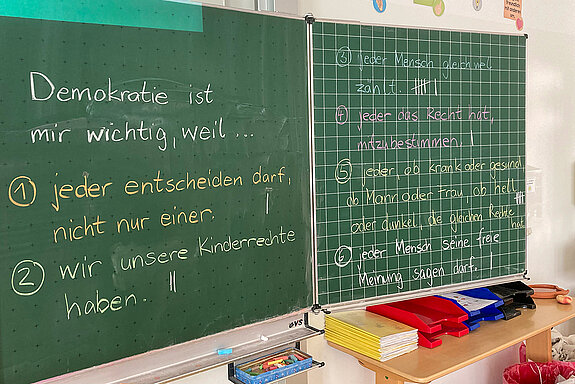 Demokratie ist
mir wichtig, weil ...
① jeder entscheiden darf,
nicht nur einer. |
② wir unsere Kinderrechte
haben. ||
③ jeder Mensch gleich viel
zählt. |||| |
④ jeder das Recht hat,
mitzubestimmen. |
⑤ jeder, ob krank oder gesund,
ob Mann oder Frau, ob hell
oder dunkel, die gleichen Rechte
hat.
⑥ jeder Mensch seine freie
Meinung sagen darf. |
evs